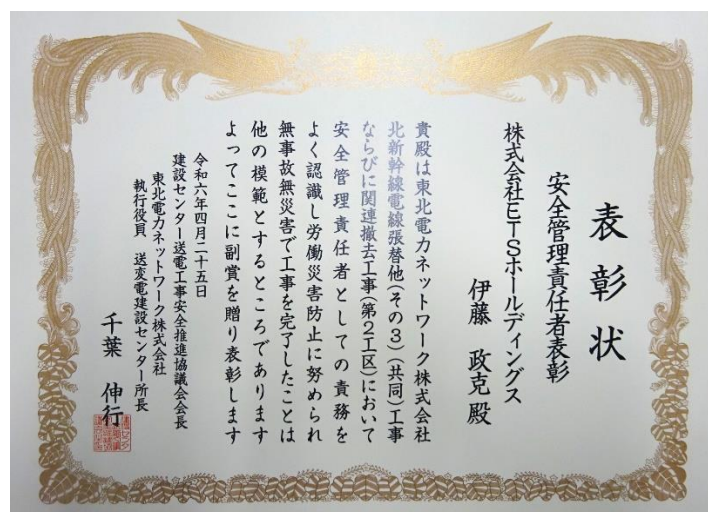 表彰状
安全管理責任者表彰
株式会社ETSホールディングス
伊藤 政克 殿
貴殿は東北電力ネットワーク株式会社
北新幹線電線張替他(その3)(共同)工事
ならびに関連撤去工事(第2工区)において
安全管理責任者としての責務を
よく認識し労働災害防止に努められ
無事故無災害で工事を完了したことは
他の模範とするところであります
よってここに副賞を贈り表彰します
令和六年四月二十五日
建設センター送電工事安全推進協議会会長
東北電力ネットワーク株式会社
執行役員 送変電建設センター所長
千葉 伸行